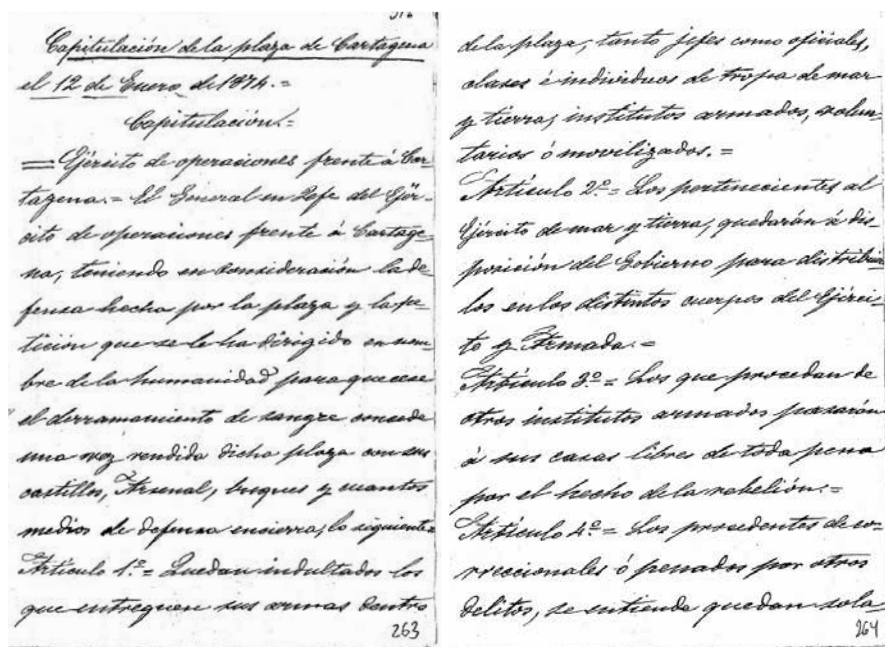 Capitulación de la plaza de Cartagena
el 12 de Enero de 1874.=
Capitulación.=
= Ejército de operaciones frente á Car-
tagena.= El General en Gefe del Ejér-
cito de operaciones frente á Cartage-
na, teniendo en consideración la de-
fensa hecha por la plaza y la pe-
tición que se le ha dirigido en nom-
bre de la humanidad para que cese
el derramamiento de sangre concede
una vez rendida dicha plaza con sus
castillos, Arsenal, buques y cuantos
medios de defensa encierra, lo siguiente=
Artículo 1º.= Quedan indultados los
que entreguen sus armas dentro
263
de la plaza, tanto jefes como oficiales,
clases é individuos de tropa de mar
y tierra, institutos armados, volun-
tarios ó movilizados.=
Artículo 2º.= Los pertenecientes al
Ejército de mar y tierra, quedarán á dis-
posición del Gobierno para distribuir
los en los distintos cuerpos del Ejérci-
to y Armada.=
Artículo 3º = Los que procedan de
otros institutos armados pasarán
á sus casas libres de toda pena
por el hecho de la rebelión.=
Artículo 4º = Los procedentes de co-
rreccionales ó penados por otros
delitos, se entiende quedan sola-
264